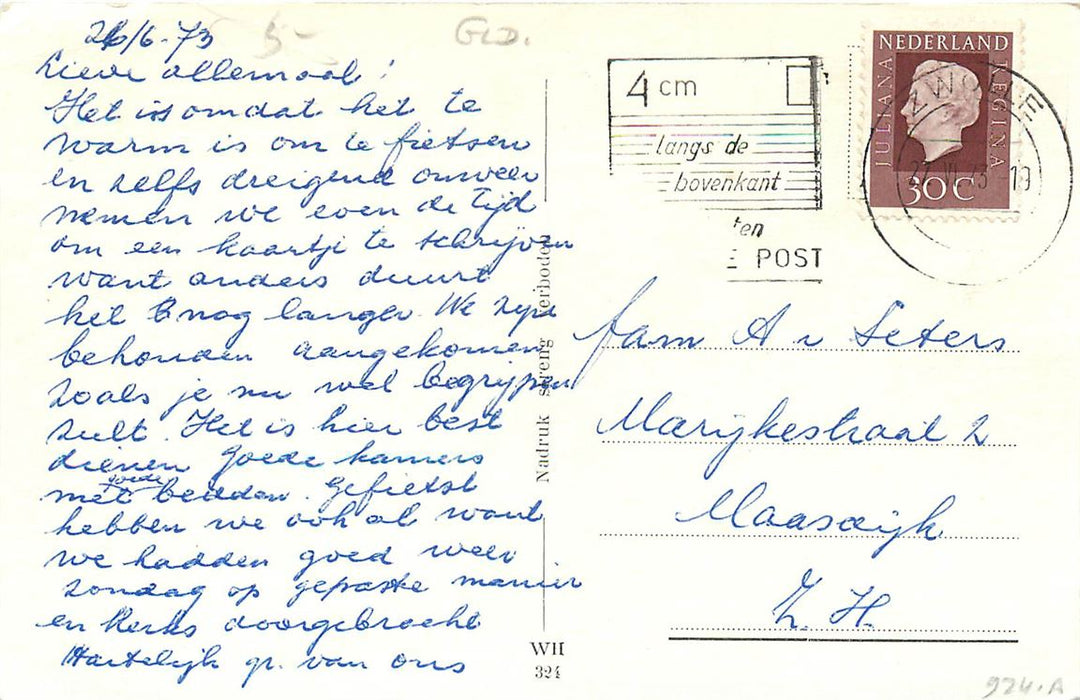 26/6-73
Lieve allemaal!
Het is omdat het te
warm is om te fietsen
en zelfs dreigend onweer
nemen we even de tijd
om een kaartje te schrijven
want anders duurt
het nog langer. We zijn
behouden aangekomen
zoals je nu wel begrijpen
zult. Het is hier best
dienen goede kamers
met goede bedden. Gefietst
hebben we ook al want
we hadden goed weer
zondag op gepaste manier
en Kerks doorgebracht
Hartelijk gr. van ons
5-
GLD.
4 cm
langs de
bovenkant
POST
NEDERLAND
JULIANA REGINA
30C
ZWOLLE
fam A v Seters
Marijkestraat 2
Maasdijk
Z.H.
Nadruk streng verboden
WH
324
924.A